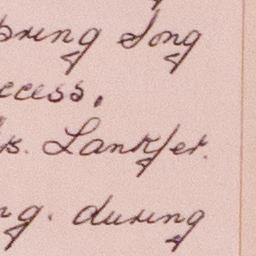 pring Song
ccess.
rs. Lankfer.
ng. during